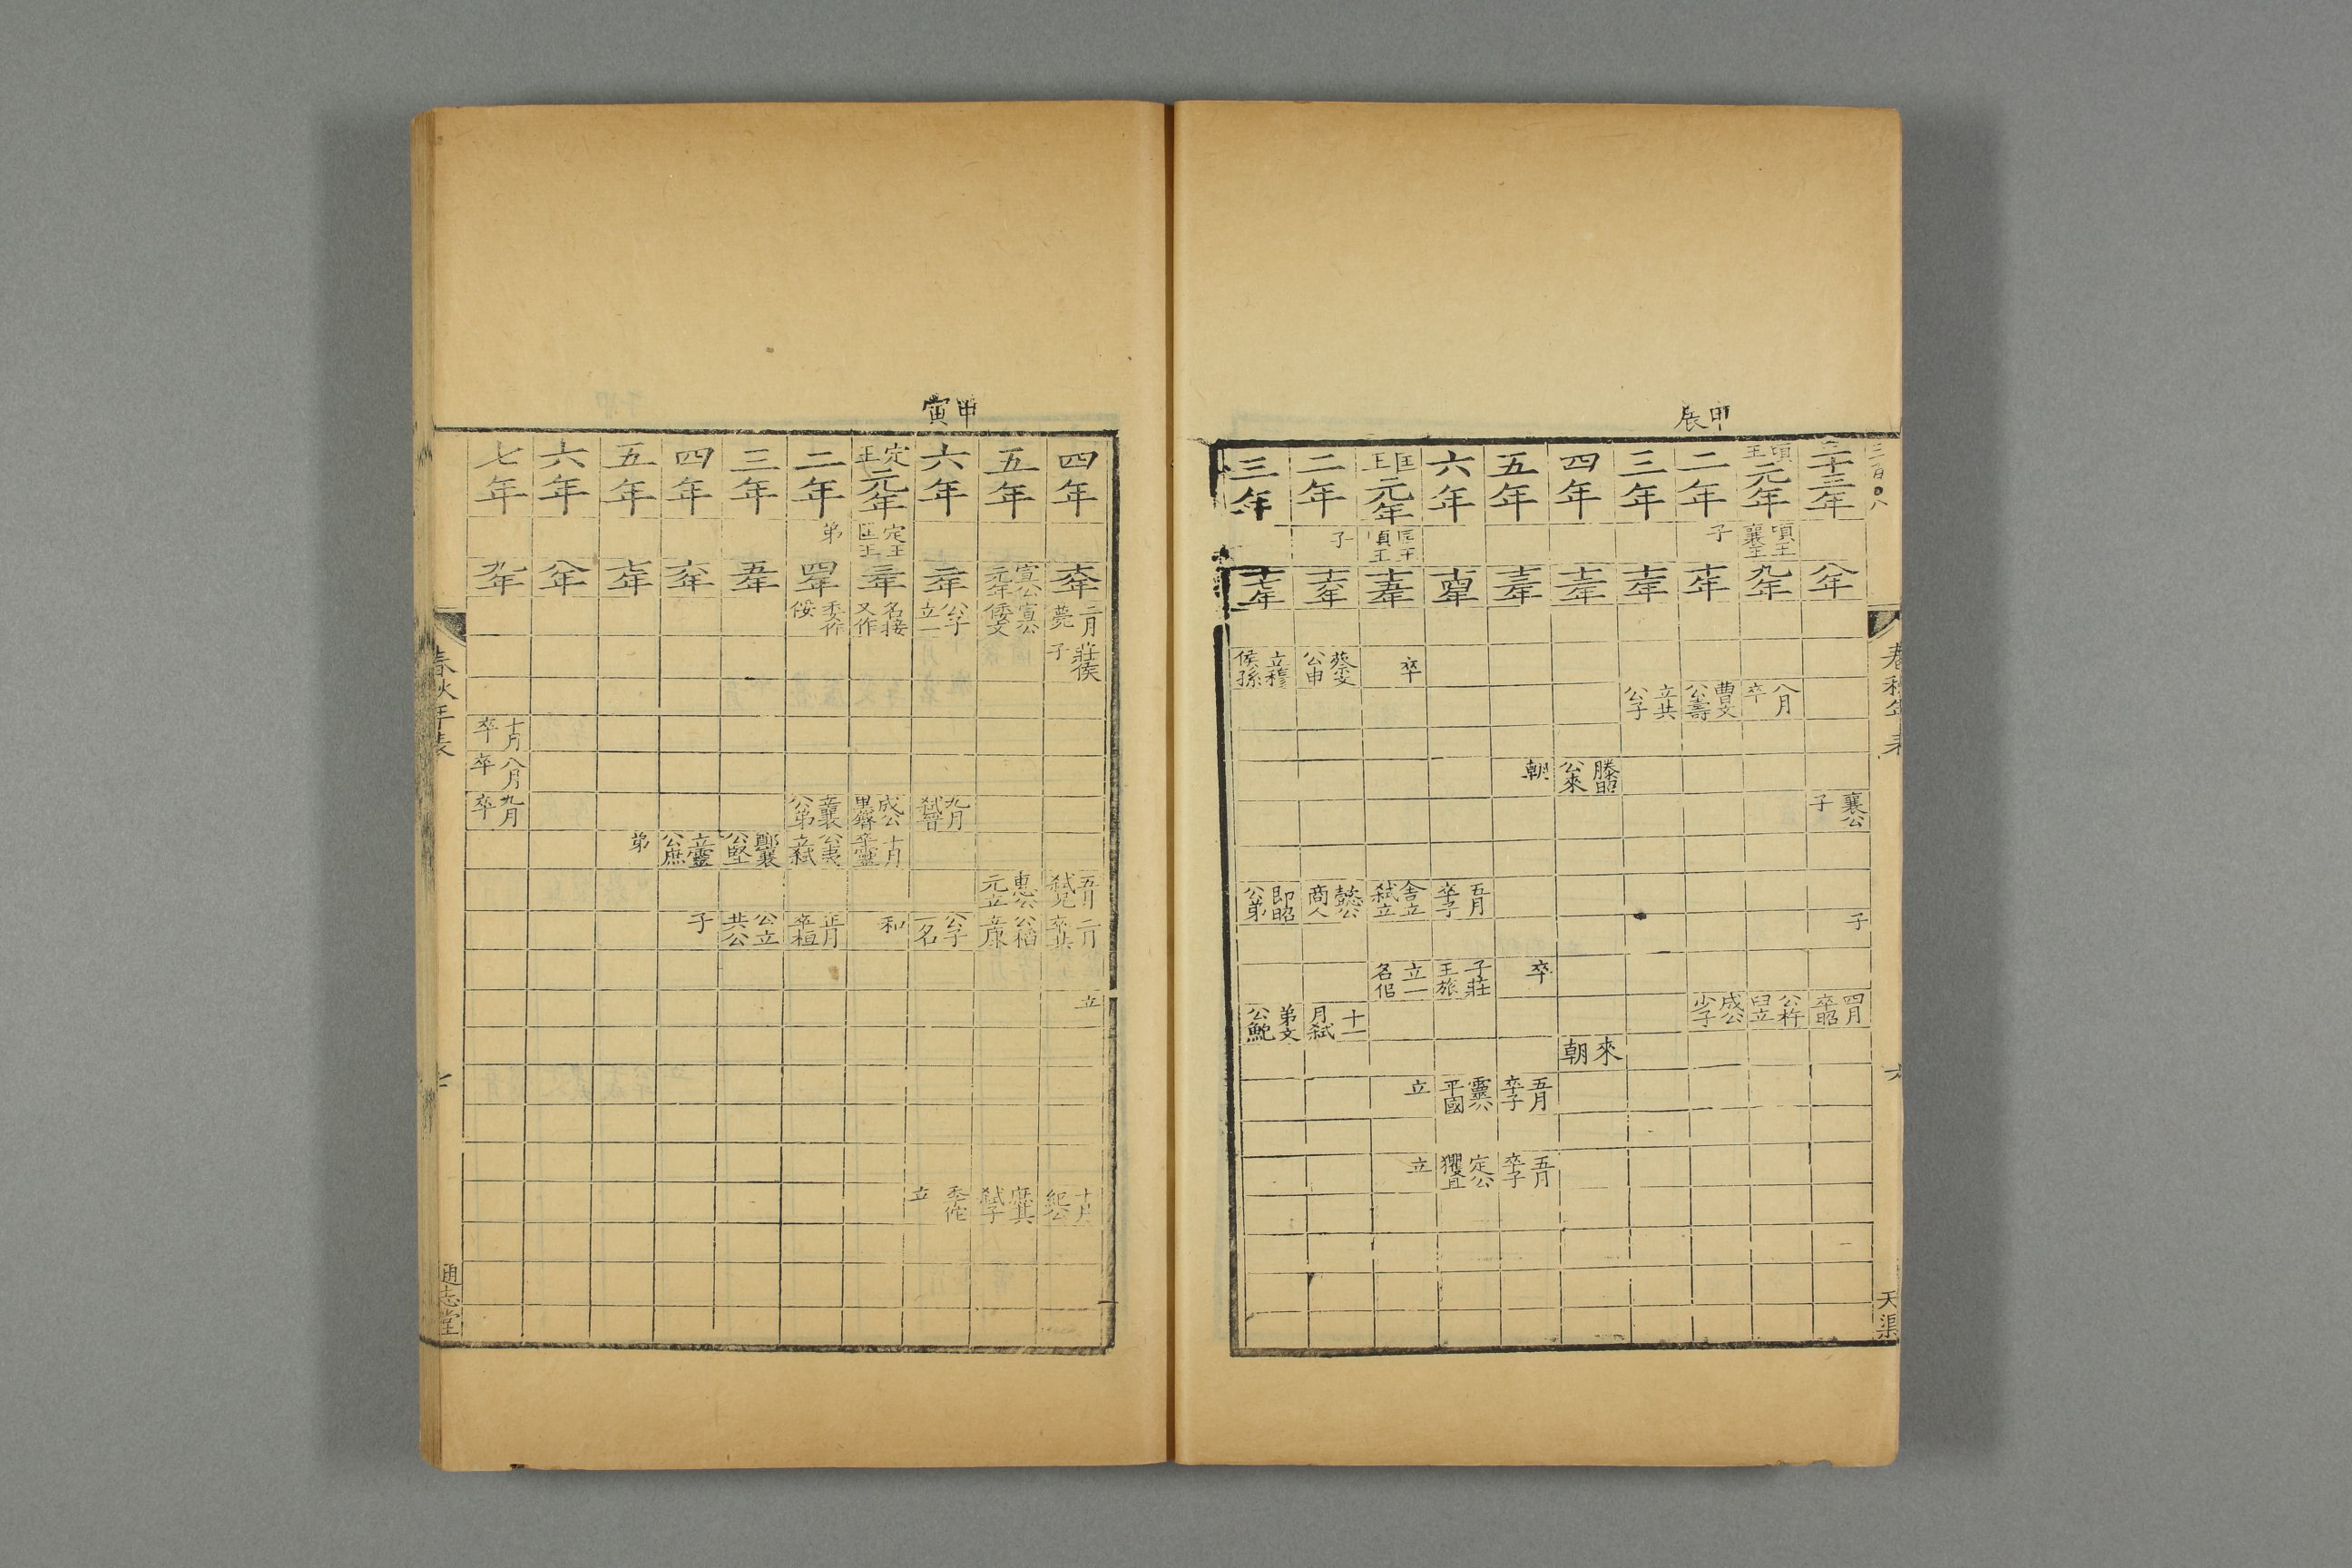 三百〇八
春秋年表
六
天渠
甲辰
三十三年
頃王元年
二年
三年
四年
五年
六年
匡王元年
二年
三年
頃王襄王
子
匡王頃王
子
八年
九年
十年
十一年
十二年
十三年
十四年
十五年
十六年
十七年
卒
蔡文公申
立穆侯孫
八月卒
曹文公壽
立共公子
滕昭公來
朝
襄公子
子
五月卒子
舍立弑立
懿公商人
即昭公弟
卒
子莊王旅
立一名侣
四月卒昭
公杵臼立
成公少子
十一月弑
弟文公鮑
來朝
五月卒子
靈公平國
立
五月卒子
定公貜且
立
甲寅
四年
五年
六年
定王元年
二年
三年
四年
五年
六年
七年
定王匡王
弟
十八年
宣公元年
二年
三年
四年
五年
六年
七年
八年
九年
二月薨
宣公倭文
公子立一
名接又作
委作倭
莊侯子
十月卒
八月卒
九月卒
九月弑
成公黑臀
立襄公弟
十月卒靈
公夷立弑
鄭襄公堅
立靈公庶
弟
五月弑兄
惠公元立
二月卒共
公稻立康
公子一名
和
正月卒桓
公立共公
子
立
十月紀公
庶其弑子
季佗立
春秋年表
七
通志堂